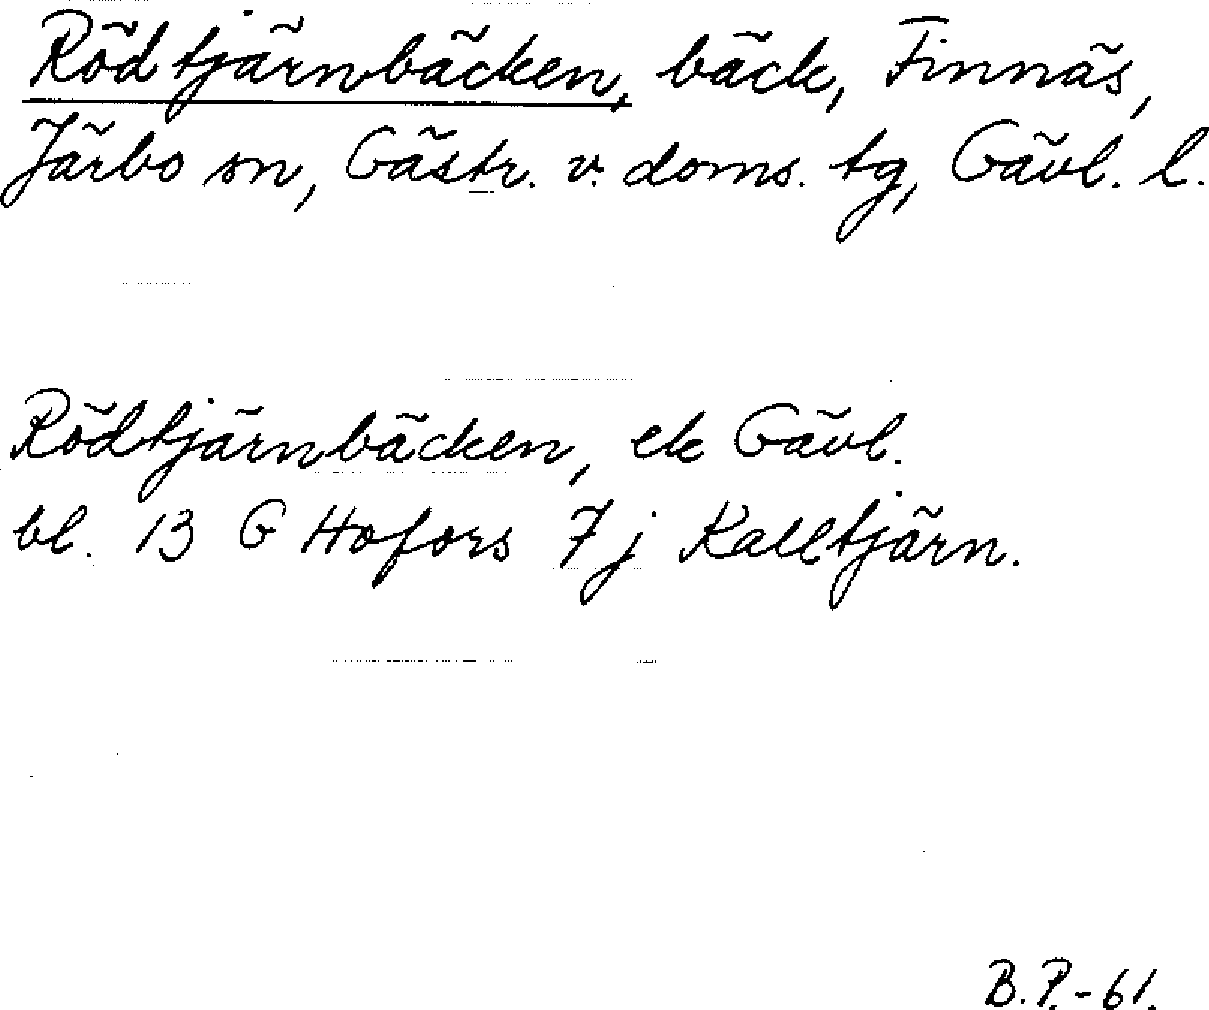 Rödtjärnbäcken, bäck, Finnäs,
Järbo sn, Gästr. v. doms. tg, Gävl. l.
Rödtjärnbäcken, ek Gävl.
bl. 13 G Hofors 7 j Kalltjärn.
B.P.-61.